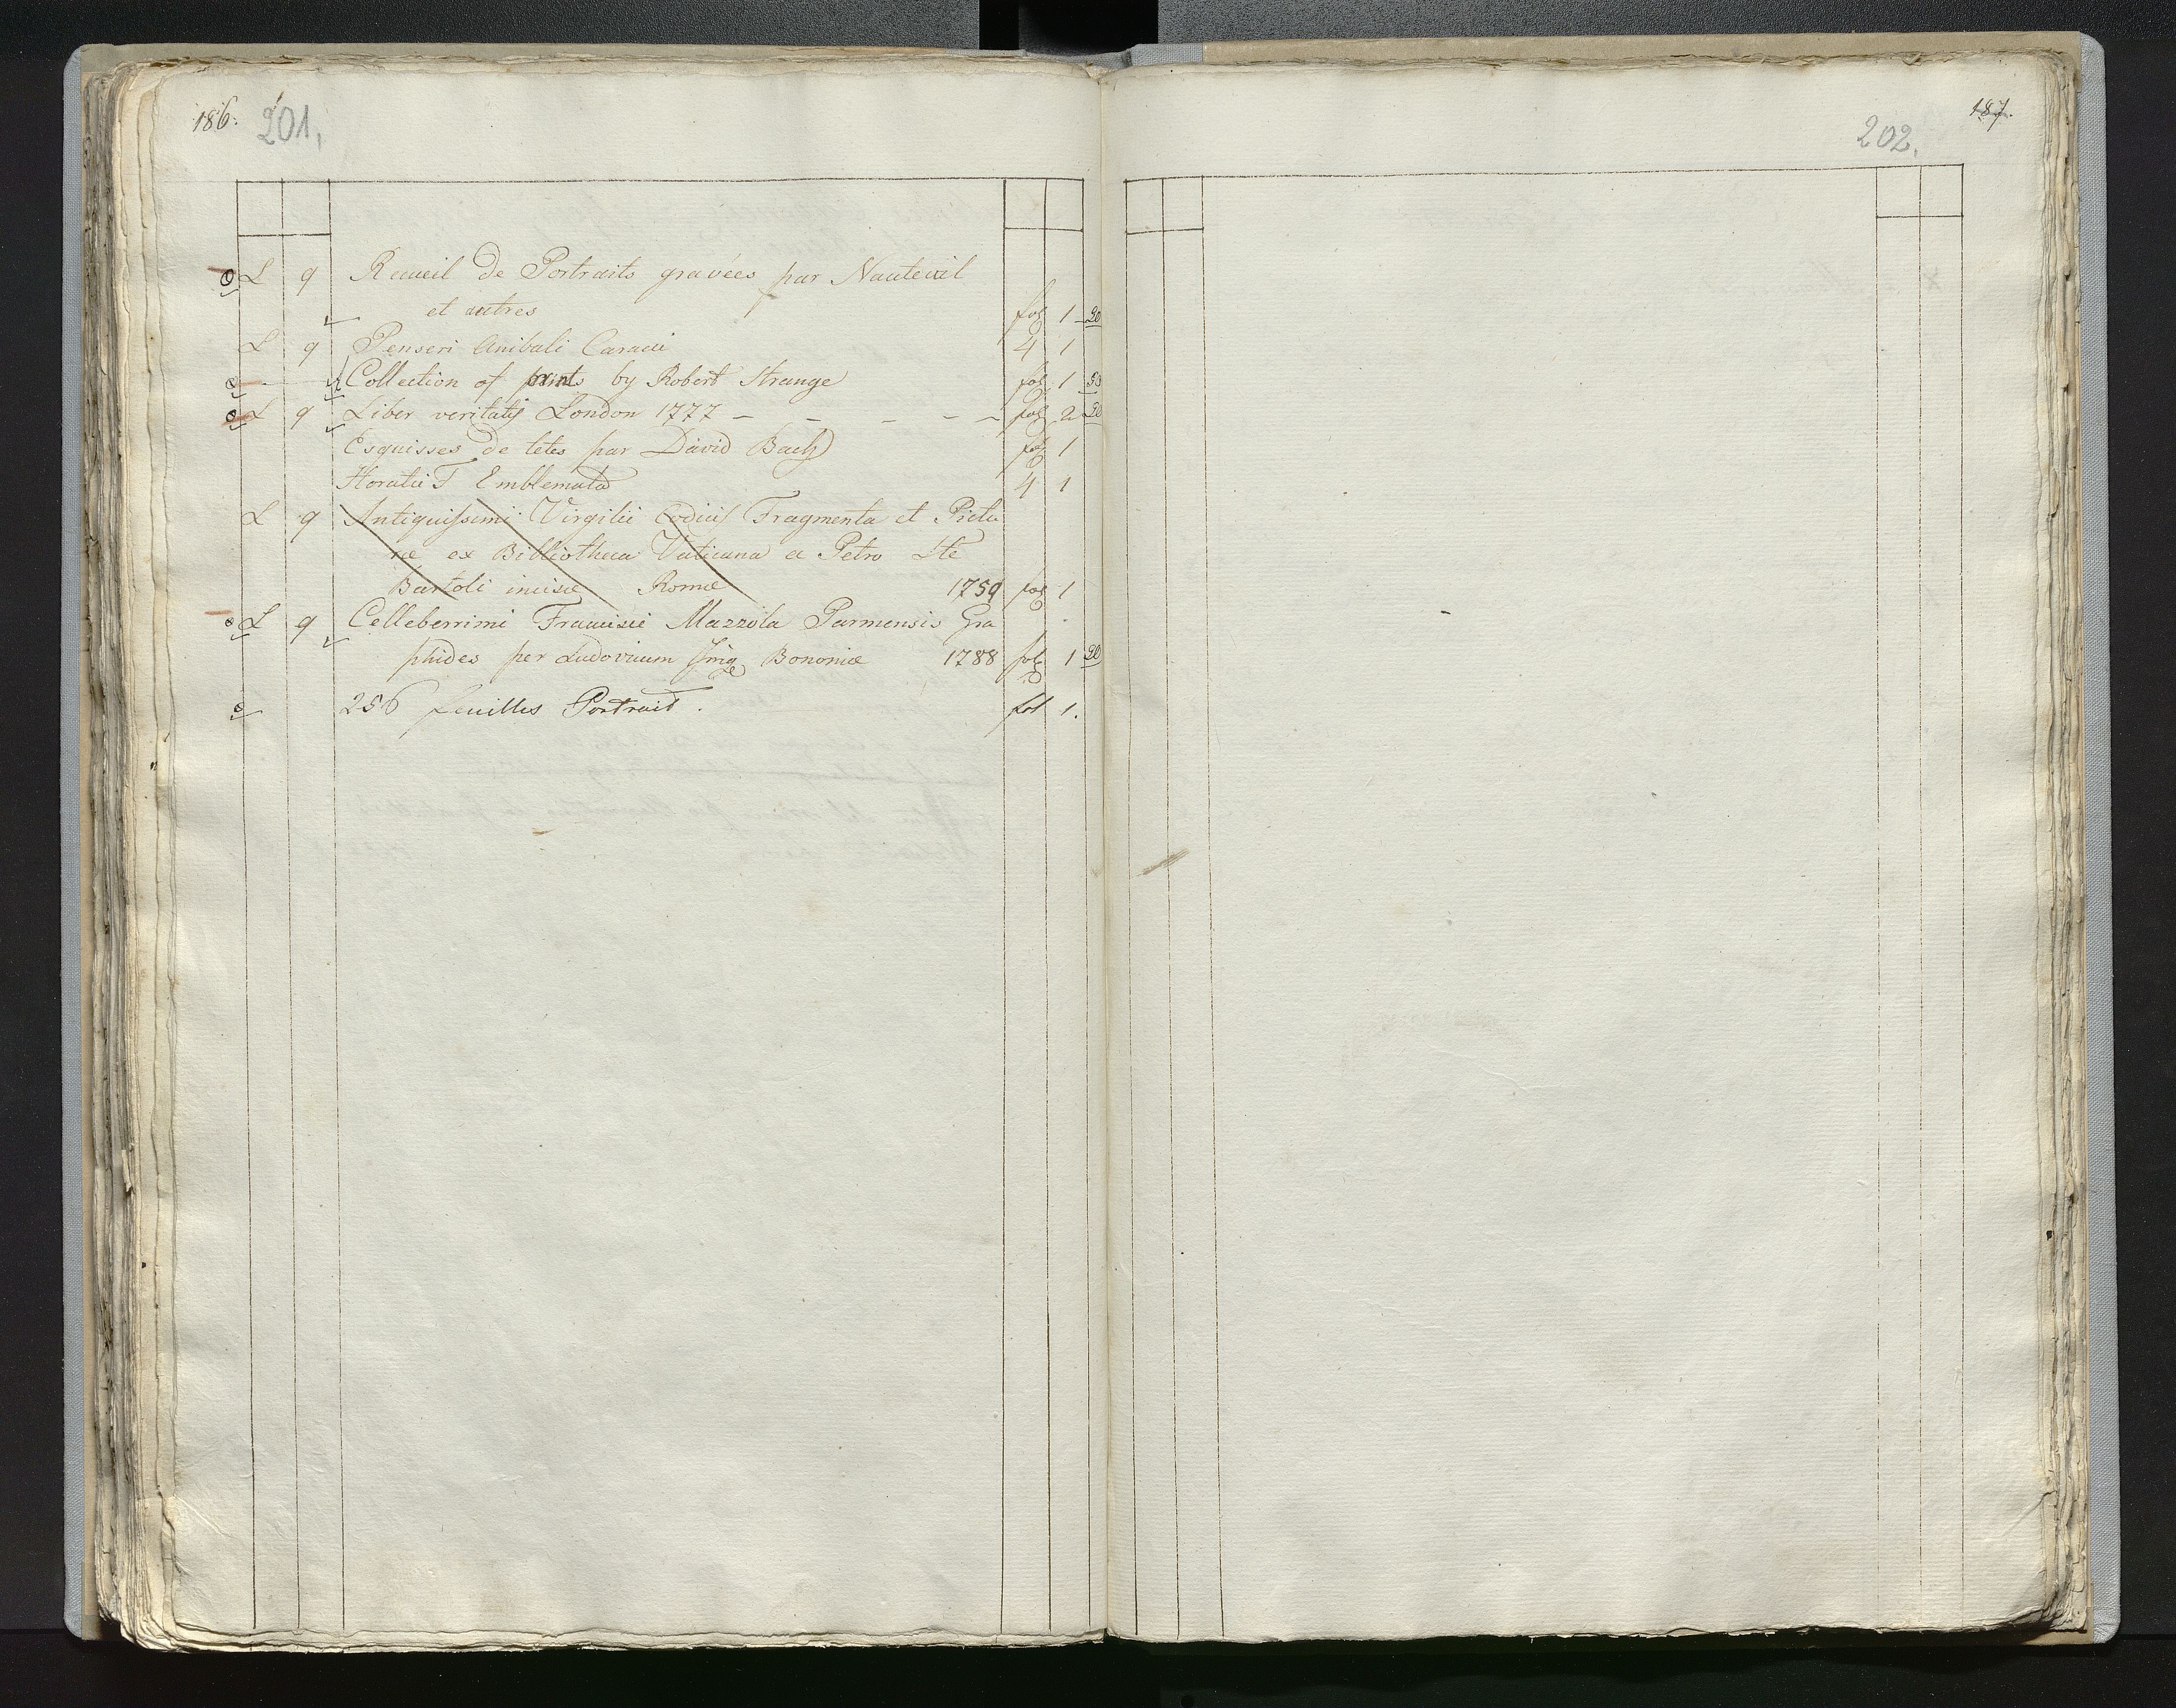 186. 201.
L q Recueil de Portraits gravées par Nauteuil
et autres fol 1 20
L q Penseri Anibali Caracci 4 1
Collection of prints by Robert Strange fol 1 50
L q Liber veritatis London 1777 – – – – fol 2 20
Esquisses de tetes par David Bach fol 1
Horatii F Emblemata 4 1
L q Antiquissimi Virgilii Codicis Fragmenta et Pictu
ræ ex Bibliotheca Vaticana a Petro Ste
Bartoli incisæ Romæ 1759 fol 1
L q Celleberrimi Francisci Mazzola Parmensis Gra
phides per Ludovicum Bononiæ 1788 fol 1 20
256 feuilles Portrait. fol 1.
187.
202.